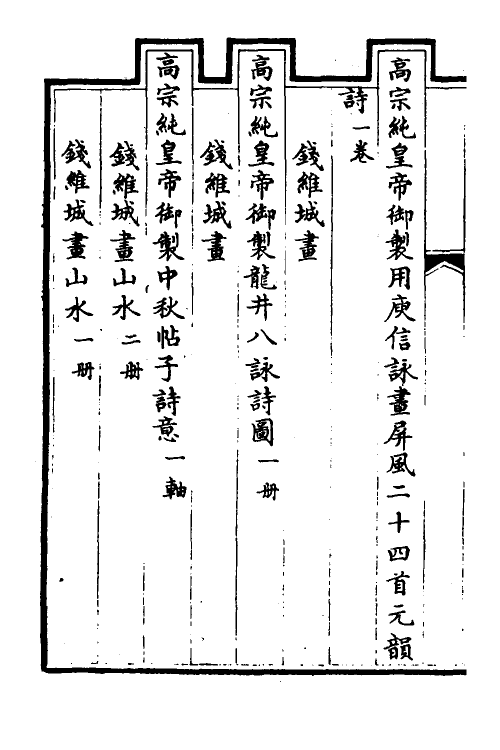 高宗純皇帝御製用庾信詠畫屏風二十四首元韻
詩一卷
錢維城畫
高宗純皇帝御製龍井八詠詩圖一册
錢維城畫
高宗純皇帝御製中秋帖子詩意一軸
錢維城畫山水二册
錢維城畫山水一册